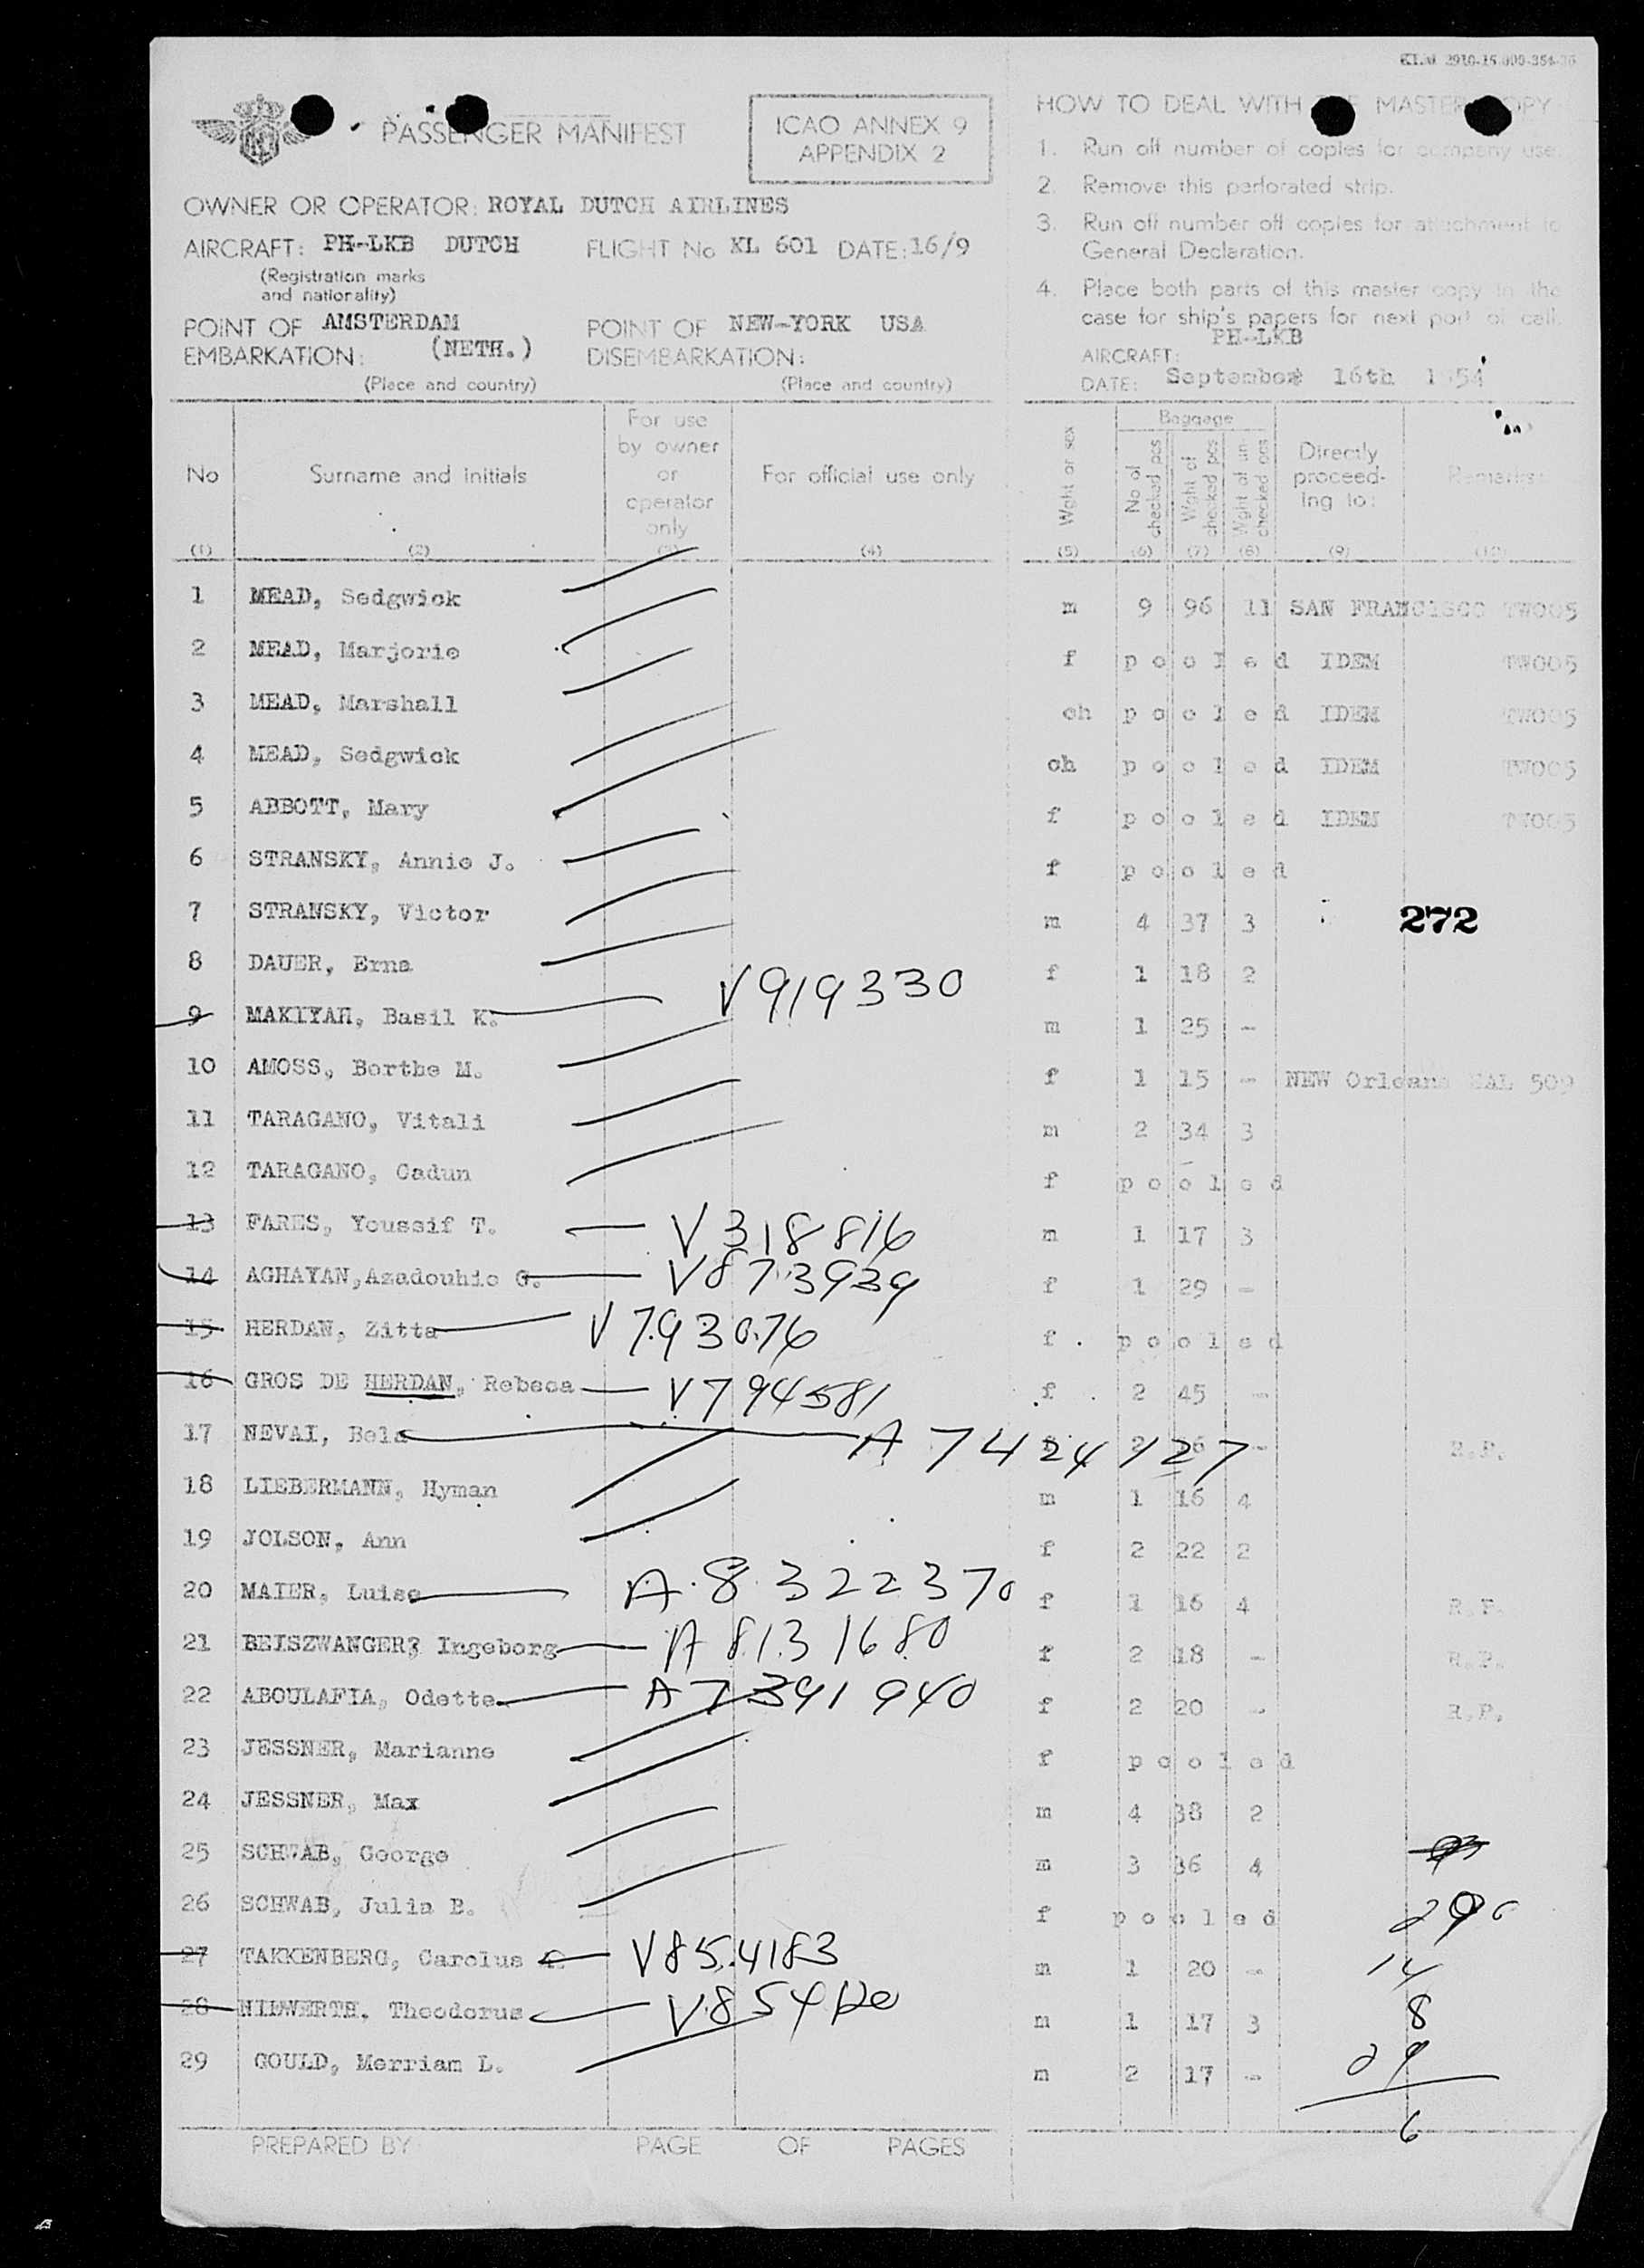 KLM 2910-15.000-354-
PASSENGER MANIFEST
ICAO ANNEX 9
APPENDIX 2
OWNER OR OPERATOR: ROYAL DUTCH AIRLINES
AIRCRAFT: PH-LKB DUTCH FLIGHT No KL 601 DATE: 16/9
(Registration marks
and nationality)
POINT OF AMSTERDAM POINT OF NEW-YORK USA
EMBARKATION: (NETH.) DISEMBARKATION:
(Place and country) (Place and country)
HOW TO DEAL WITH MASTER COPY
1. Run off number of copies for company use.
2. Remove this perforated strip.
3. Run off number off copies for attachment to
General Declaration.
4. Place both parts of this master copy in the
case for ship's papers for next port of call.
AIRCRAFT: PH-LKB
DATE: September 16th 1954
No Surname and initials For use by owner or operator only For official use only Wght or sex Baggage No of checked pcs Wght of checked pcs Wght of un-checked pcs Directly proceed-ing to: Remarks:
(1) (2) (3) (4) (5) (6) (7) (8) (9) (10)
1 MEAD, Sedgwick m 9 96 11 SAN FRANCISCO TW005
2 MEAD, Marjorie f pooled IDEM TW005
3 MEAD, Marshall ch pooled IDEM TW005
4 MEAD, Sedgwick ch pooled IDEM TW005
5 ABBOTT, Mary f pooled IDEM TW005
6 STRANSKY, Annie J. f pooled
7 STRANSKY, Victor m 4 37 3 272
8 DAUER, Erna f 1 18 2
9 MAKIYAH, Basil K. V919330 m 1 25 -
10 AMOSS, Berthe M. f 1 15 - NEW Orleans EAL 509
11 TARAGANO, Vitali m 2 34 3
12 TARAGANO, Cadun f pooled
13 FARES, Youssif T. V318816 m 1 17 3
14 AGHAYAN, Azadouhie G. V873939 f 1 29 -
15 HERDAN, Zitta V793076 f. pooled
16 GROS DE HERDAN, Rebeca V794581 f 2 45 -
17 NEVAI, Bela A7424127 2 6 - R.P.
18 LIEBERMANN, Hyman m 1 16 4
19 JOLSON, Ann f 2 22 2
20 MAIER, Luise A8322370 f 1 16 4 R.P.
21 BEISZWANGER, Ingeborg A8131680 f 2 18 - R.P.
22 ABOULAFIA, Odette A7391940 f 2 20 - R.P.
23 JESSNER, Marianne f pooled
24 JESSNER, Max m 4 38 2
25 SCHWAB, George m 3 36 4
26 SCHWAB, Julia B. f pooled
27 TAKKENBERG, Carolus V854183 m 1 20 - 14
28 Theodorus m 1 17 3 8
29 GOULD, Merriam L. m 2 17 - 29
6
PREPARED BY PAGE OF PAGES